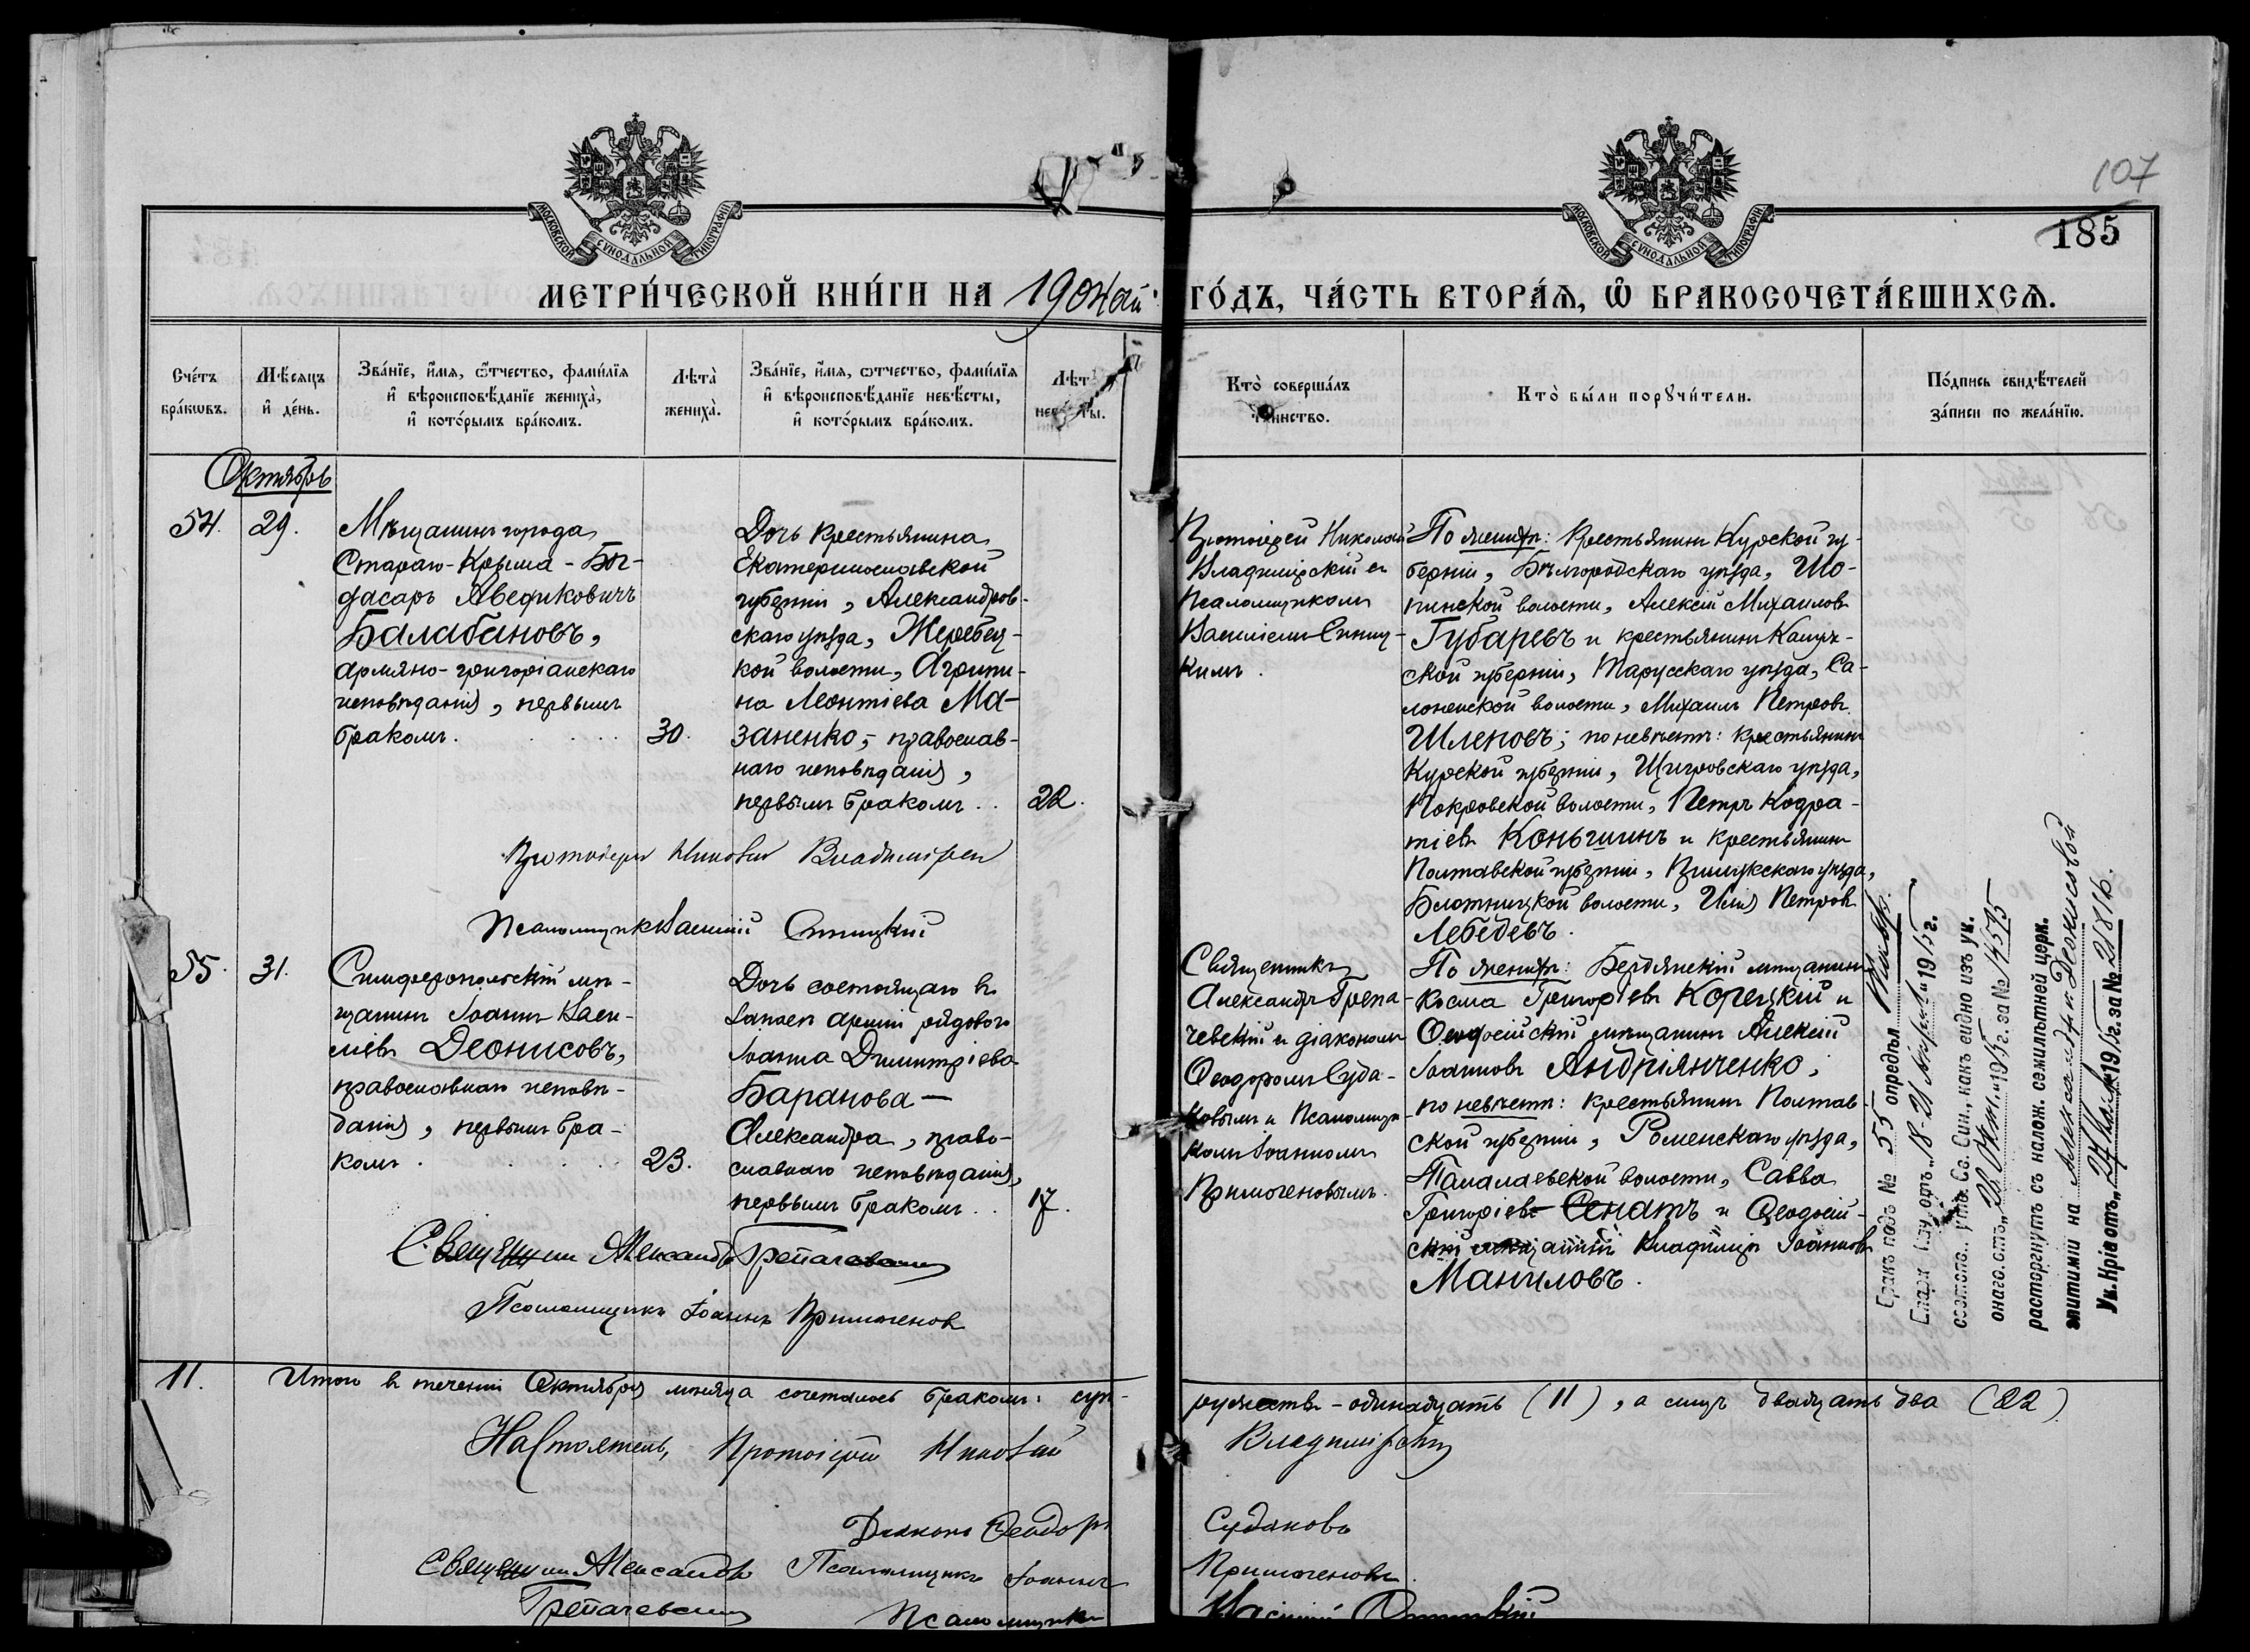 107
185
МОСКОВСКОЙ СУНОДАЛЬНОЙ ТИПОГРАФІИ
МОСКОВСКОЙ СУНОДАЛЬНОЙ ТИПОГРАФІИ
МЕТРИ́ЧЕСКОЙ КНИ́ГИ НА 190 го́дъ, ча́сть втора́ѧ, ѽ бракосочета́вшихсѧ.
Сче́тъ
бра́кѡвъ.
Мѣ́сѧцъ
и҆ де́нь.
Зва́нїе, и҆́мѧ, ѻ҆́тчество, фами́лїѧ
и҆ вѣроисповѣ́данїе жениха̀,
и҆ кото́рымъ бра́комъ.
Лѣта̀
жениха̀.
Зва́нїе, и҆́мѧ, ѻ҆́тчество, фами́лїѧ
и҆ вѣроисповѣ́данїе невѣ́сты,
и҆ кото́рымъ бра́комъ.
Кто̀ соверша́лъ
таинство.
Кто̀ бы́ли порꙋчи́тели.
По́дпись свидѣ́телей
за́писи по жела́нїю.
Октябрь
54.
29.
Мѣщанинъ города
Стараго-Крыма - Баг-
дасаръ Аведиковичъ
Балабановъ,
армяно-григоріанскаго
исповѣданія, первымъ
бракомъ.
30.
Дочь крестьянина
Екатеринославской
губерніи, Александров-
скаго уѣзда, Жеребец-
кой волости, Агрипи-
на Леонтіева Ма-
заненко, - православ-
наго исповѣданія,
первымъ бракомъ..
22.
Протоіерей Николай
Владимірскій съ
Псаломщикомъ
Василіемъ
По женихѣ: Крестьянинъ Курской гу-
берніи, Бѣлгородскаго уѣзда, Шо-
пинской волости, Алексій Михаиловъ
Губаревъ и крестьянинъ Калуж-
ской губерніи, Тарусскаго уѣзда, Са-
ломенской волости, Михаилъ Петровъ
Шлеповъ; по невѣстѣ: крестьянинъ
Курской губерніи, Щигровскаго уѣзда,
Покровской волости, Петръ Кодра-
тіевъ Коньшинъ и крестьянинъ
Полтавской губерніи, уѣзда,
волости, Илія Петровъ
Лебедевъ.
Протоіерей Николай Владимірскій
Псаломщикъ Василій
55.
31.
Симферопольскій мѣ-
щанинъ Іоаннъ Васи-
ліевъ Деонисовъ,
православнаго исповѣ-
данія, первымъ бра-
комъ.
23.
Дочь состоящаго въ
запасѣ арміи рядового
Іоанна Димитріева
Баранова —
Александра, право-
славнаго исповѣданія,
первымъ бракомъ..
17.
Священникъ
Александръ Грепа-
чевскій съ діакономъ
Ѳеодоромъ Суда-
ковымъ и Псаломщи-
комъ Іоанномъ
Примогеновымъ.
По женихѣ: Бердянскій мѣщанинъ
Косма Григоріевъ Корецкій и
Ѳеодосійскій мѣщанинъ Алексій
Іоанновъ Андріянченко;
по невѣстѣ: крестьянинъ Полтав-
ской губерніи, Роменскаго уѣзда,
Талалаевской волости, Савва
Григоріевъ Сенатъ и Ѳеодосій-
скій Владиміръ Іоанновъ
Маниловъ.
Бракъ подъ № 55 опредѣл.
Епарх. Нач. отъ „18-21 1915 г.
состояв., утв. Св. Син., какъ видно изъ ук.
онаго отъ „26 Окт." 1915 г. за № 14575
расторгнутъ съ налож. семилѣтней церк.
эпитиміи на Александру Деонисовой
Ук. К-ріи отъ „27 1915 г. за № 21816.
Священникъ Александръ Грепачевскій
Псаломщикъ Іоаннъ Примогеновъ
11.
Итого въ теченіи Октября мѣсяца сочеталось бракомъ: суп-
ружествъ - одинадцать (11), а лицъ двадцать два (22)
Настоятель, Протоіерей Николай Владимірскій
Діаконъ Ѳеодоръ Судаковъ
Священникъ Александръ Псаломщикъ Іоаннъ Примогеновъ
Грепачевскій Псаломщикъ Василій